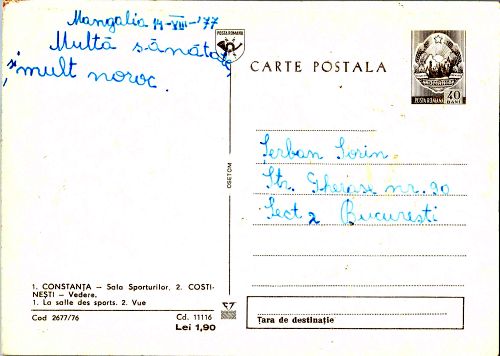 Mangalia 14-VIII-'77
Multă sănătate,
și mult noroc.
POSTA ROMANA
CARTE POSTALA
POSTA ROMANA 40 BANI
Șerban Sorin
Str. Gherase nr. 20
Sect 2 București
OSETCM
1. CONSTANȚA – Sala Sporturilor, 2. COSTI-
NEȘTI – Vedere.
1. La salle des sports. 2. Vue
Cod 2677/76
Cd. 11116
Lei 1,90
Țara de destinație